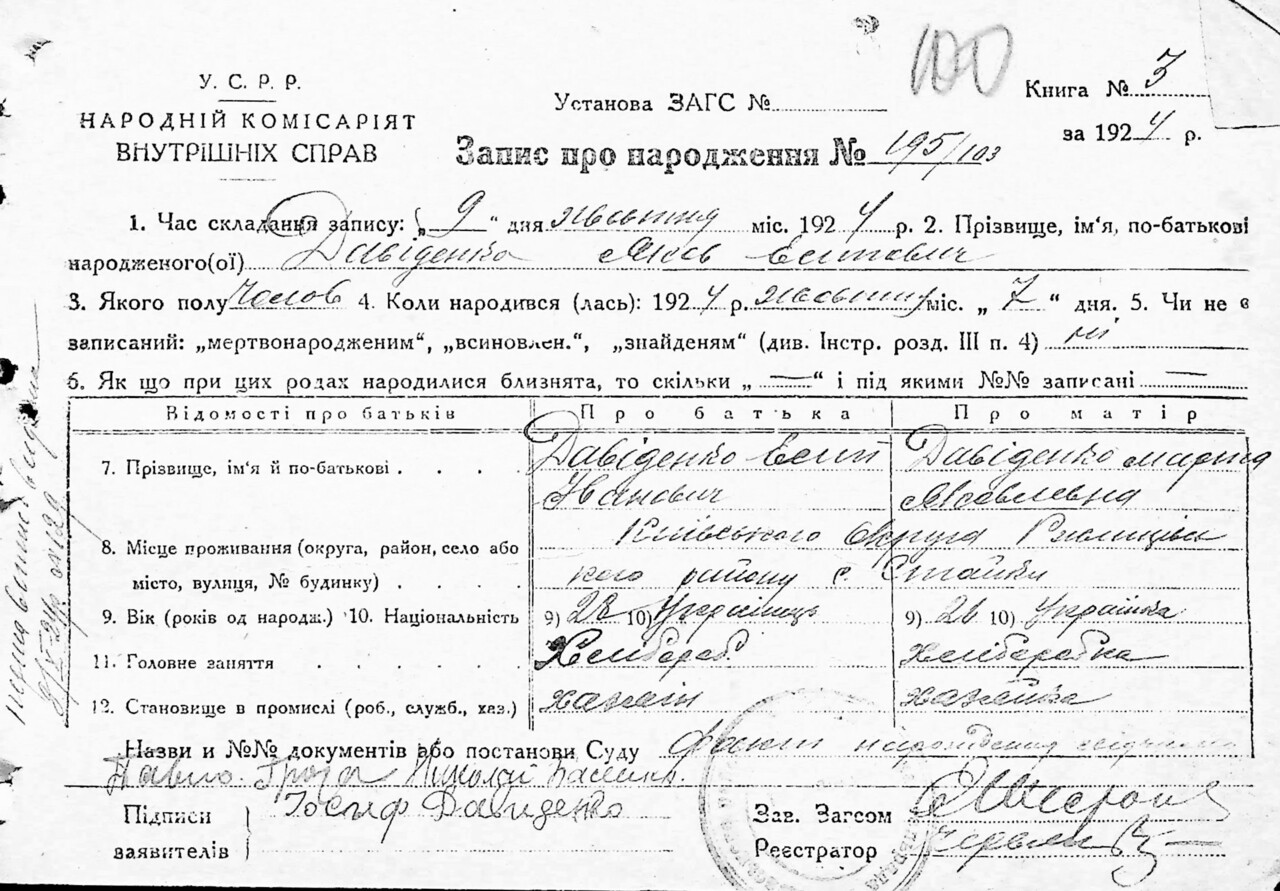 100
У. С. Р. Р.
НАРОДНІЙ КОМІСАРІЯТ
ВНУТРІШНІХ СПРАВ
Установа ЗАГС №
Книга № 3
за 1924 р.
Запис про народження № 195/103
1. Час складання запису: „9“ дня жовтня міс. 1924 р. 2. Прізвище, ім‘я, по-батькові
народженого(ої) Давіденко Яков Есипович
3. Якого полу чолов 4. Коли народився (лась): 1924 р. жовтня міс. „7“ дня. 5. Чи не є
записаний: „мертвонародженим“, „всиновлен.“, „знайденям“ (див. Інстр. розд. III п. 4) ні
6. Як що при цих родах народилися близнята, то скільки „—“ і під якими №№ записані —
Відомості про батьків Про батька Про матір
7. Прізвище, ім‘я й по-батькові . . . . Давіденко Есип Давіденко Мария
Іванович Яковлевна
8. Місце проживання (округа, район, село або Київського Округа Ржищів
місто, вулиця, № будинку) . . . . кого району с. Стайки
9. Вік (років од народж.) 10. Національність 9) 28 10) Українець 9) 26 10) Українка
11. Головне заняття . . . . . Хлібороб. Хлиборобка
12. Становище в промислі (роб., служб., хаз.) хазяін хазяйка
Назви и №№ документів або постанови Суду Факт
Павло Николай
Підписи
заявителів
Іосиф Давиденко
Зав. Загсом
Реєстратор